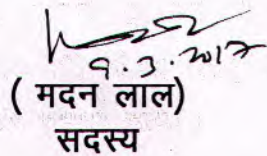 9.3.2017
( मदन लाल)
सदस्य